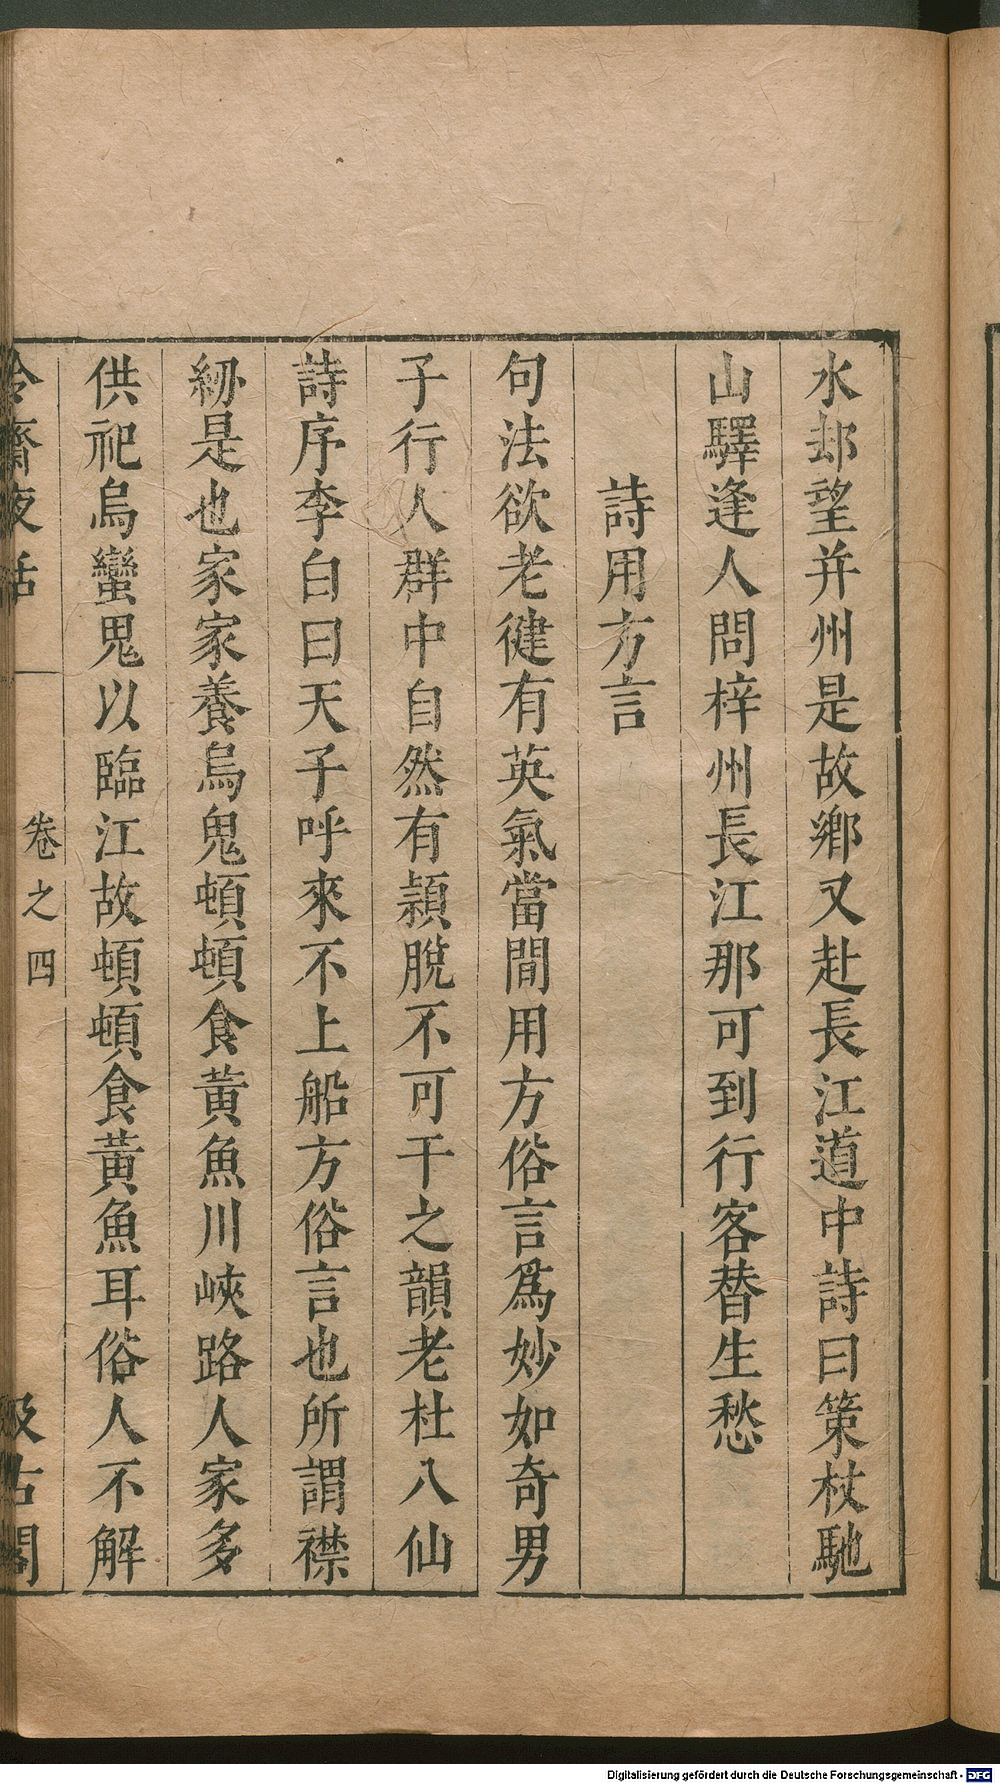 水邨望幷州是故鄉又赴長江道中詩曰策杖馳
山驛逢人問梓州長江那可到行客替生愁
詩用方言
句法欲老健有英氣當間用方俗言爲妙如奇男
子行人群中自然有穎脫不可干之韻老杜八仙
詩序李白曰天子呼來不上船方俗言也所謂襟
紉是也家家養烏鬼頓頓食黃魚川峽路人家多
供祀烏蠻鬼以臨江故頓頓食黃魚耳俗人不解
冷齋夜話
卷之四
汲古閣
Digitalisierung gefördert durch die Deutsche Forschungsgemeinschaft - DFG